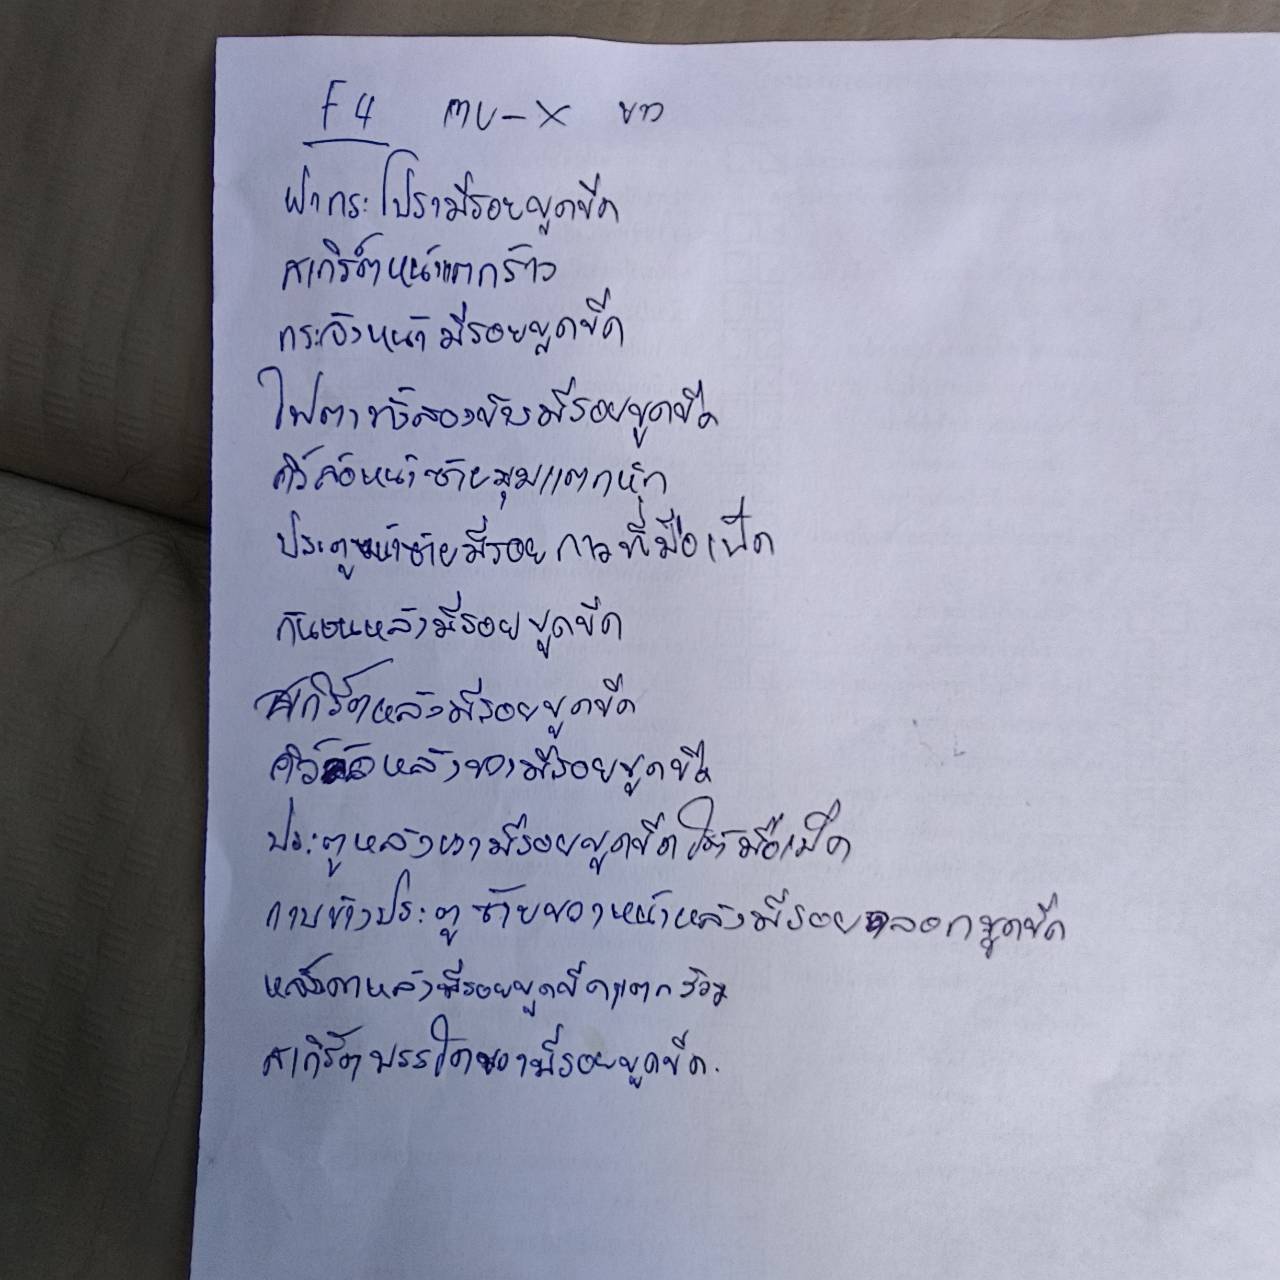 F4 mu-x ขาว
ฝากระโปรงมีรอยขูดขีด
สเกิร์ตหน้าแตกร้าว
กระจังหน้ามีรอยขูดขีด
ไฟตาทั้งสองข้างมีรอยขูดขีด
คิ้วล้อหน้าซ้ายมุมแตกหัก
ประตูหน้าซ้ายมีรอยกาวที่มือเปิด
กันชนหลังมีรอยขูดขีด
สเกิร์ตหลังมีรอยขูดขีด
คิ้วล้อหลังขวามีรอยขูดขีด
ประตูหลังขวามีรอยขูดขีดใต้มือเปิด
กาบข้างประตูซ้ายขวาหน้าหลังมีรอยถลอกขูดขีด
หลังคาหลังมีรอยขูดขีดแตกร้าว
สเกิร์ตบรรไดขวามีรอยขูดขีด.